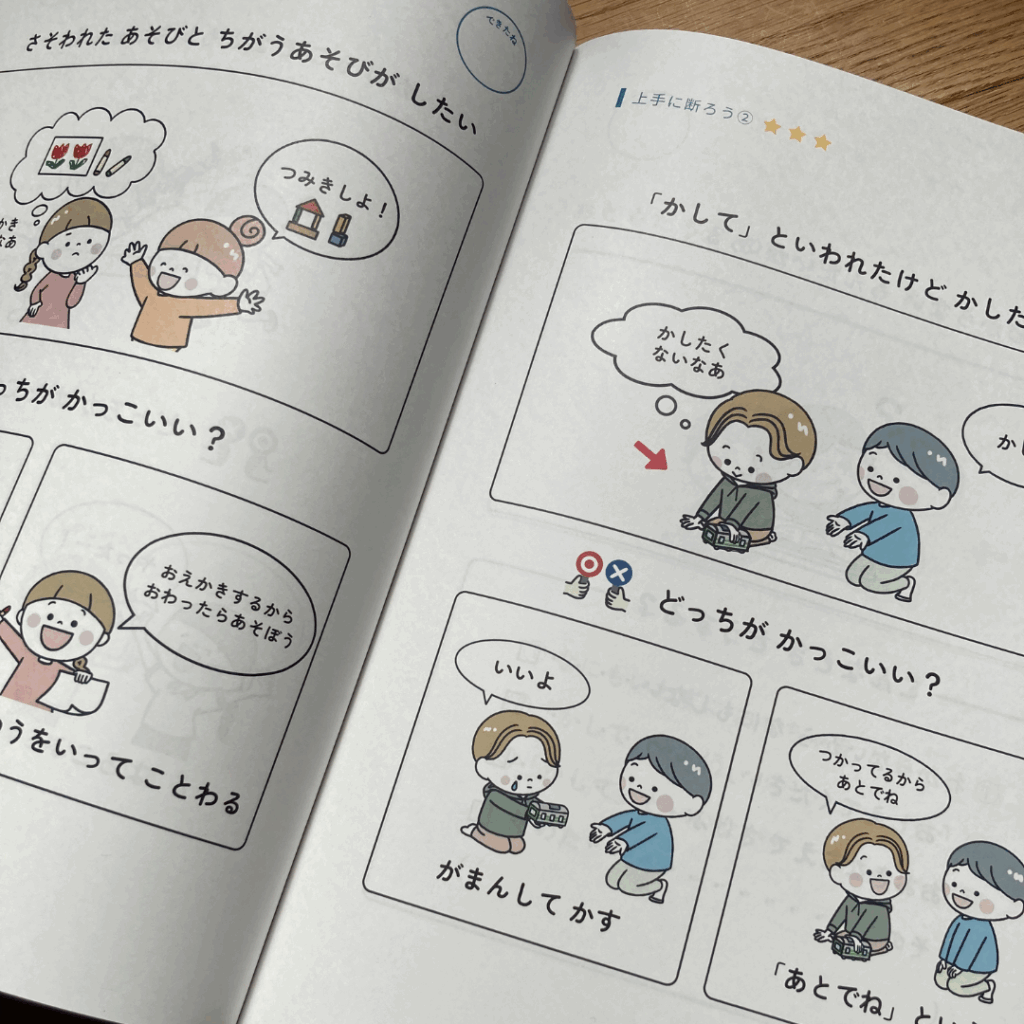 できたね
さそわれた あそびと ちがうあそびが したい
つみきしよ！
どっちが かっこいい？
おえかきするから
おわったらあそぼう
をいって ことわる
上手に断ろう②
「かして」といわれたけど かした
かしたく
ないなあ
どっちが かっこいい？
いいよ
がまんして かす
つかってるから
あとでね
「あとでね」と